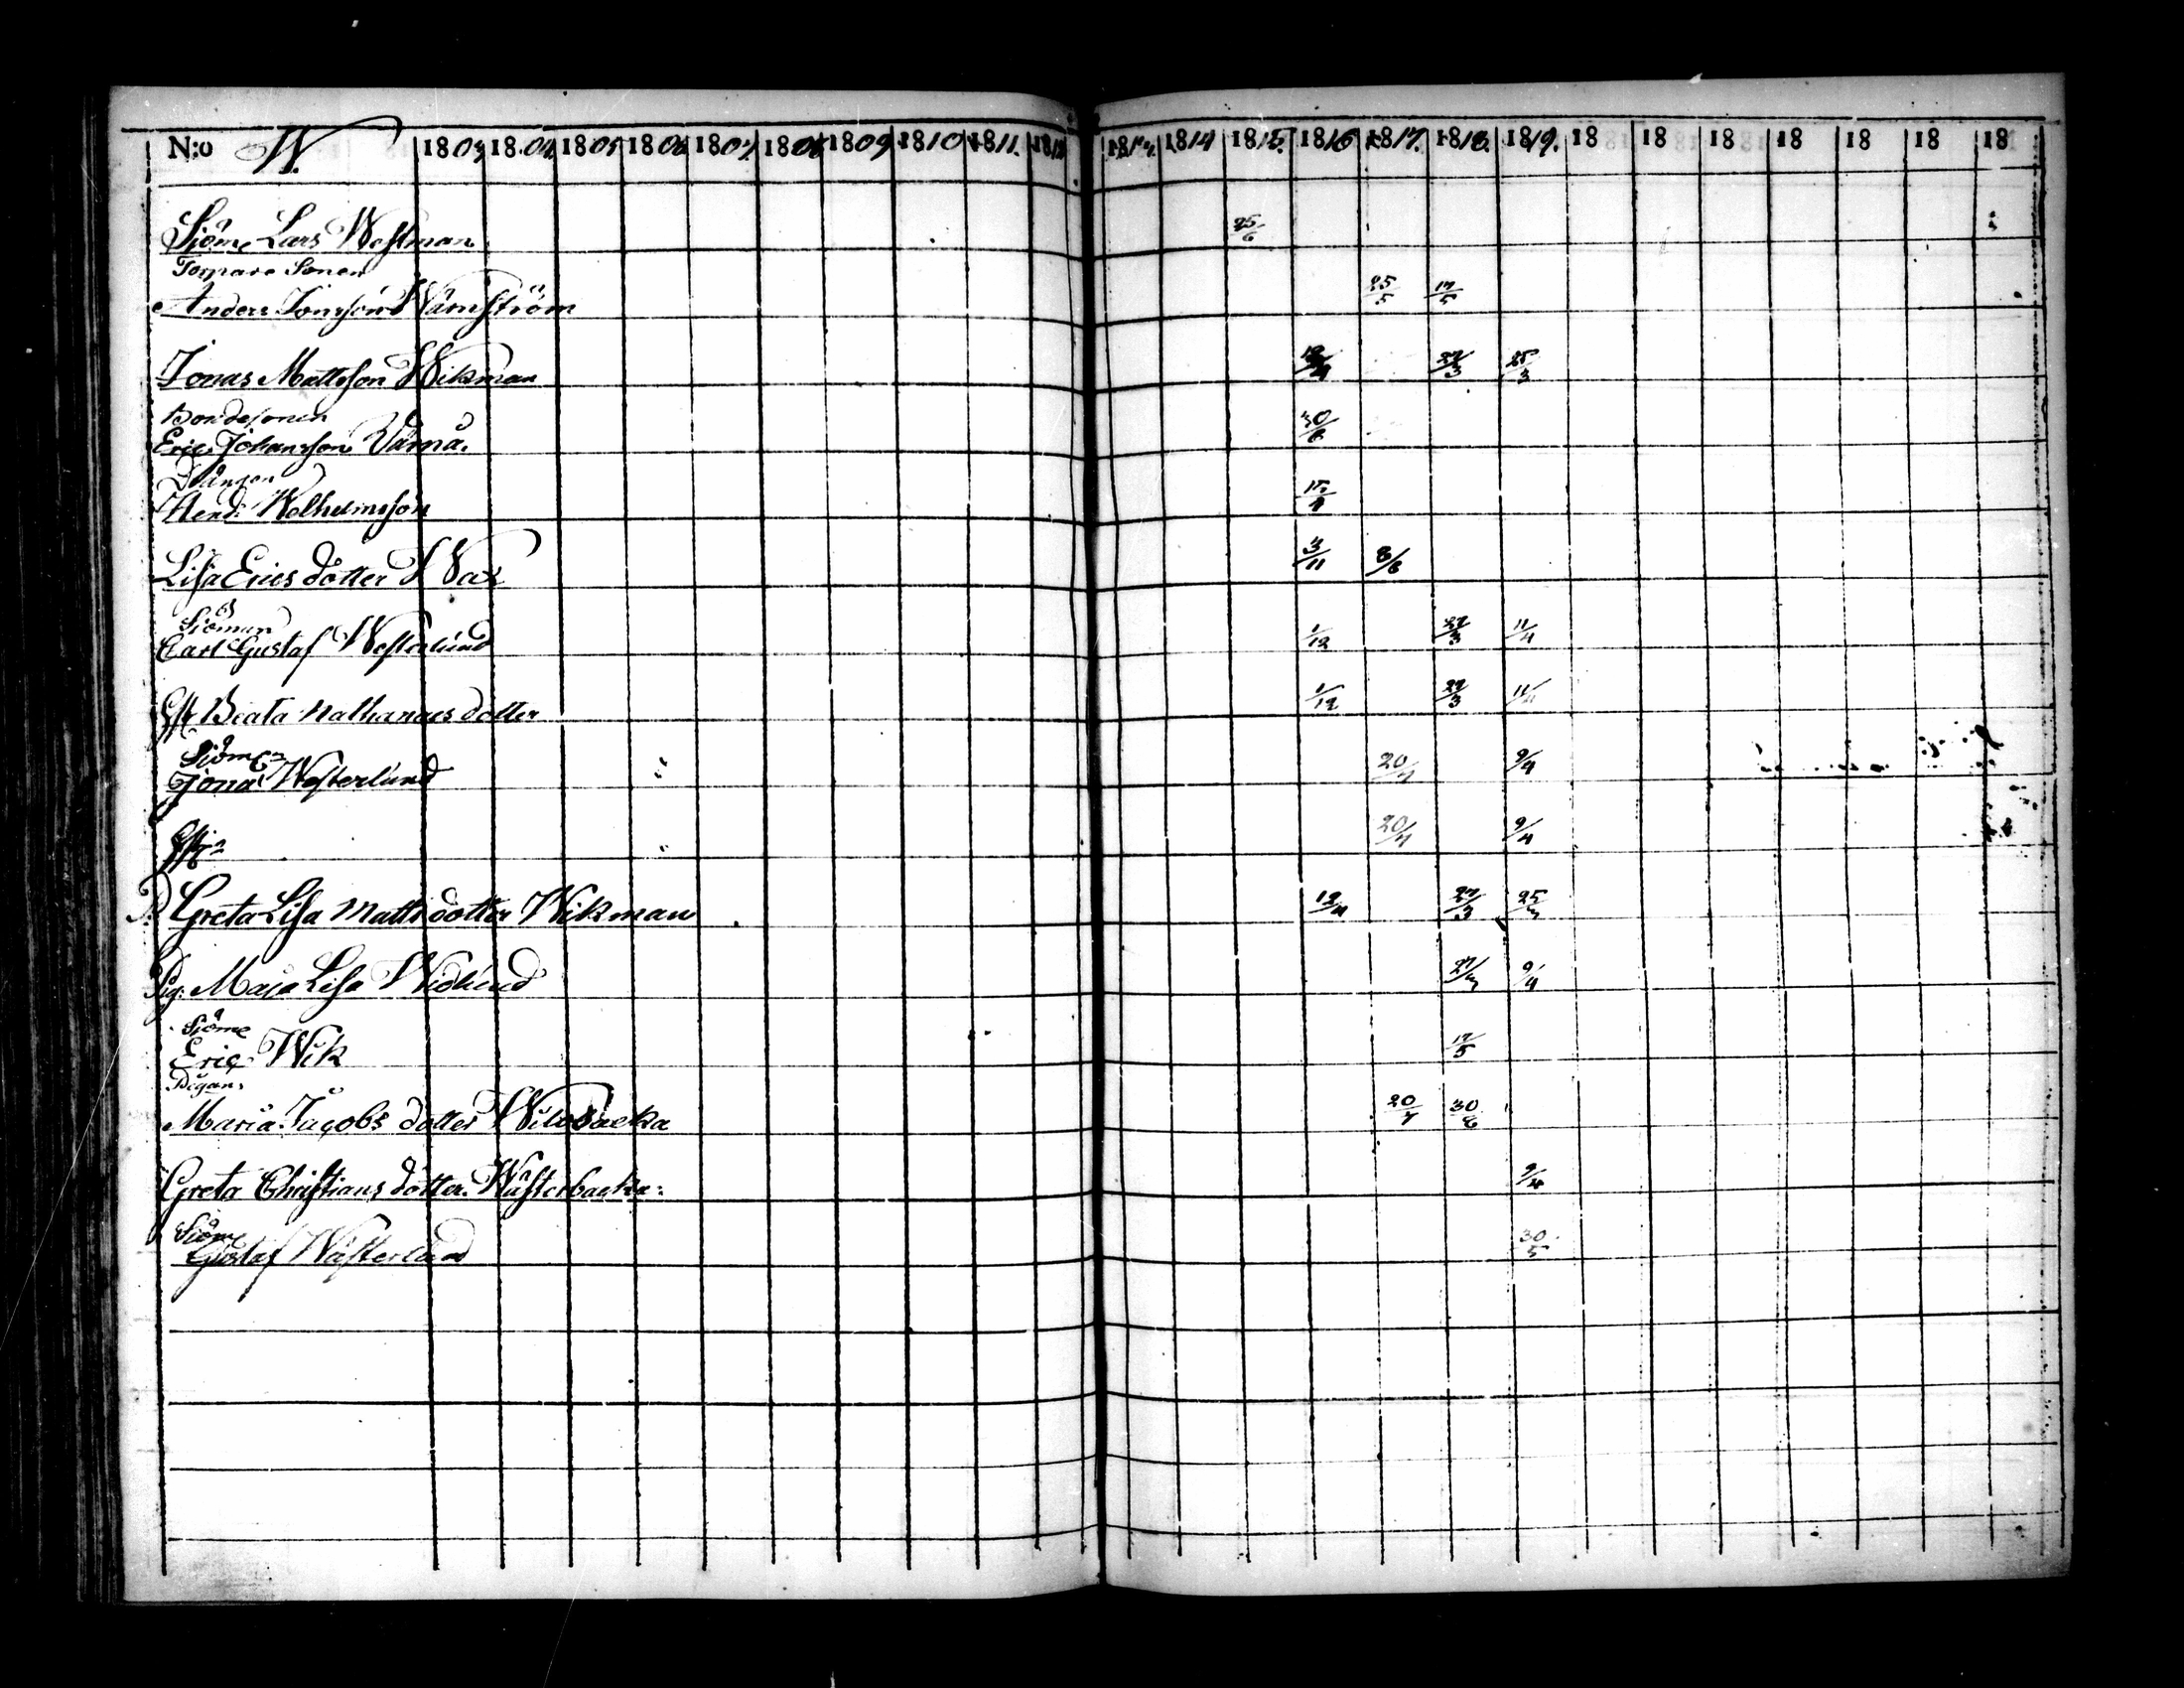 N:o W. 1803 1804 1805 1806 1807. 1808 1809 1810 1811. 1812 1813. 1814 1815. 1816 1817. 1818. 1819. 18 18 18 18 18 18 18
Siöm Lars Westman 25/6
Torpare Sonen
Anders Jonsson Wärnström 25/5 17/5
Jonas Mattsson Wikman 12/4 27/3 25/3
Bondesonen
Eric Johansson Värnå. 30/6
Drängen
Hend: Welhelmsson 15/4
Lisa Erics dotter Wax 3/11 8/6
Siöman
Carl Gustaf Westerlund 1/12 27/3 11/4
Beata Nathanaes dotter 1/12 27/3 11/4
Siöm
Jonas Westerlund 20/4 9/4
20/4 9/4
P. Greta Lisa Matts dotter Wikman 12/4 27/3 25/3
Pig: Maja Lisa Widlund 27/3 9/4
Siöm
Eric Wik 17/5
Pigan
Maria Jacobs dotter 20/7 30/6
Greta Christians dotter Wästerbacka: 9/4
Siöm
Gustaf Wästerlund 30/5